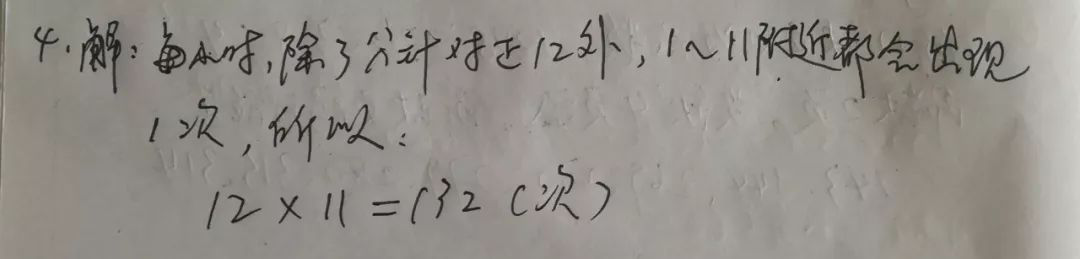 4.解：每小时,除了分针对正12外，1~11附近都会出现
1次，所以：
12×11=132(次)